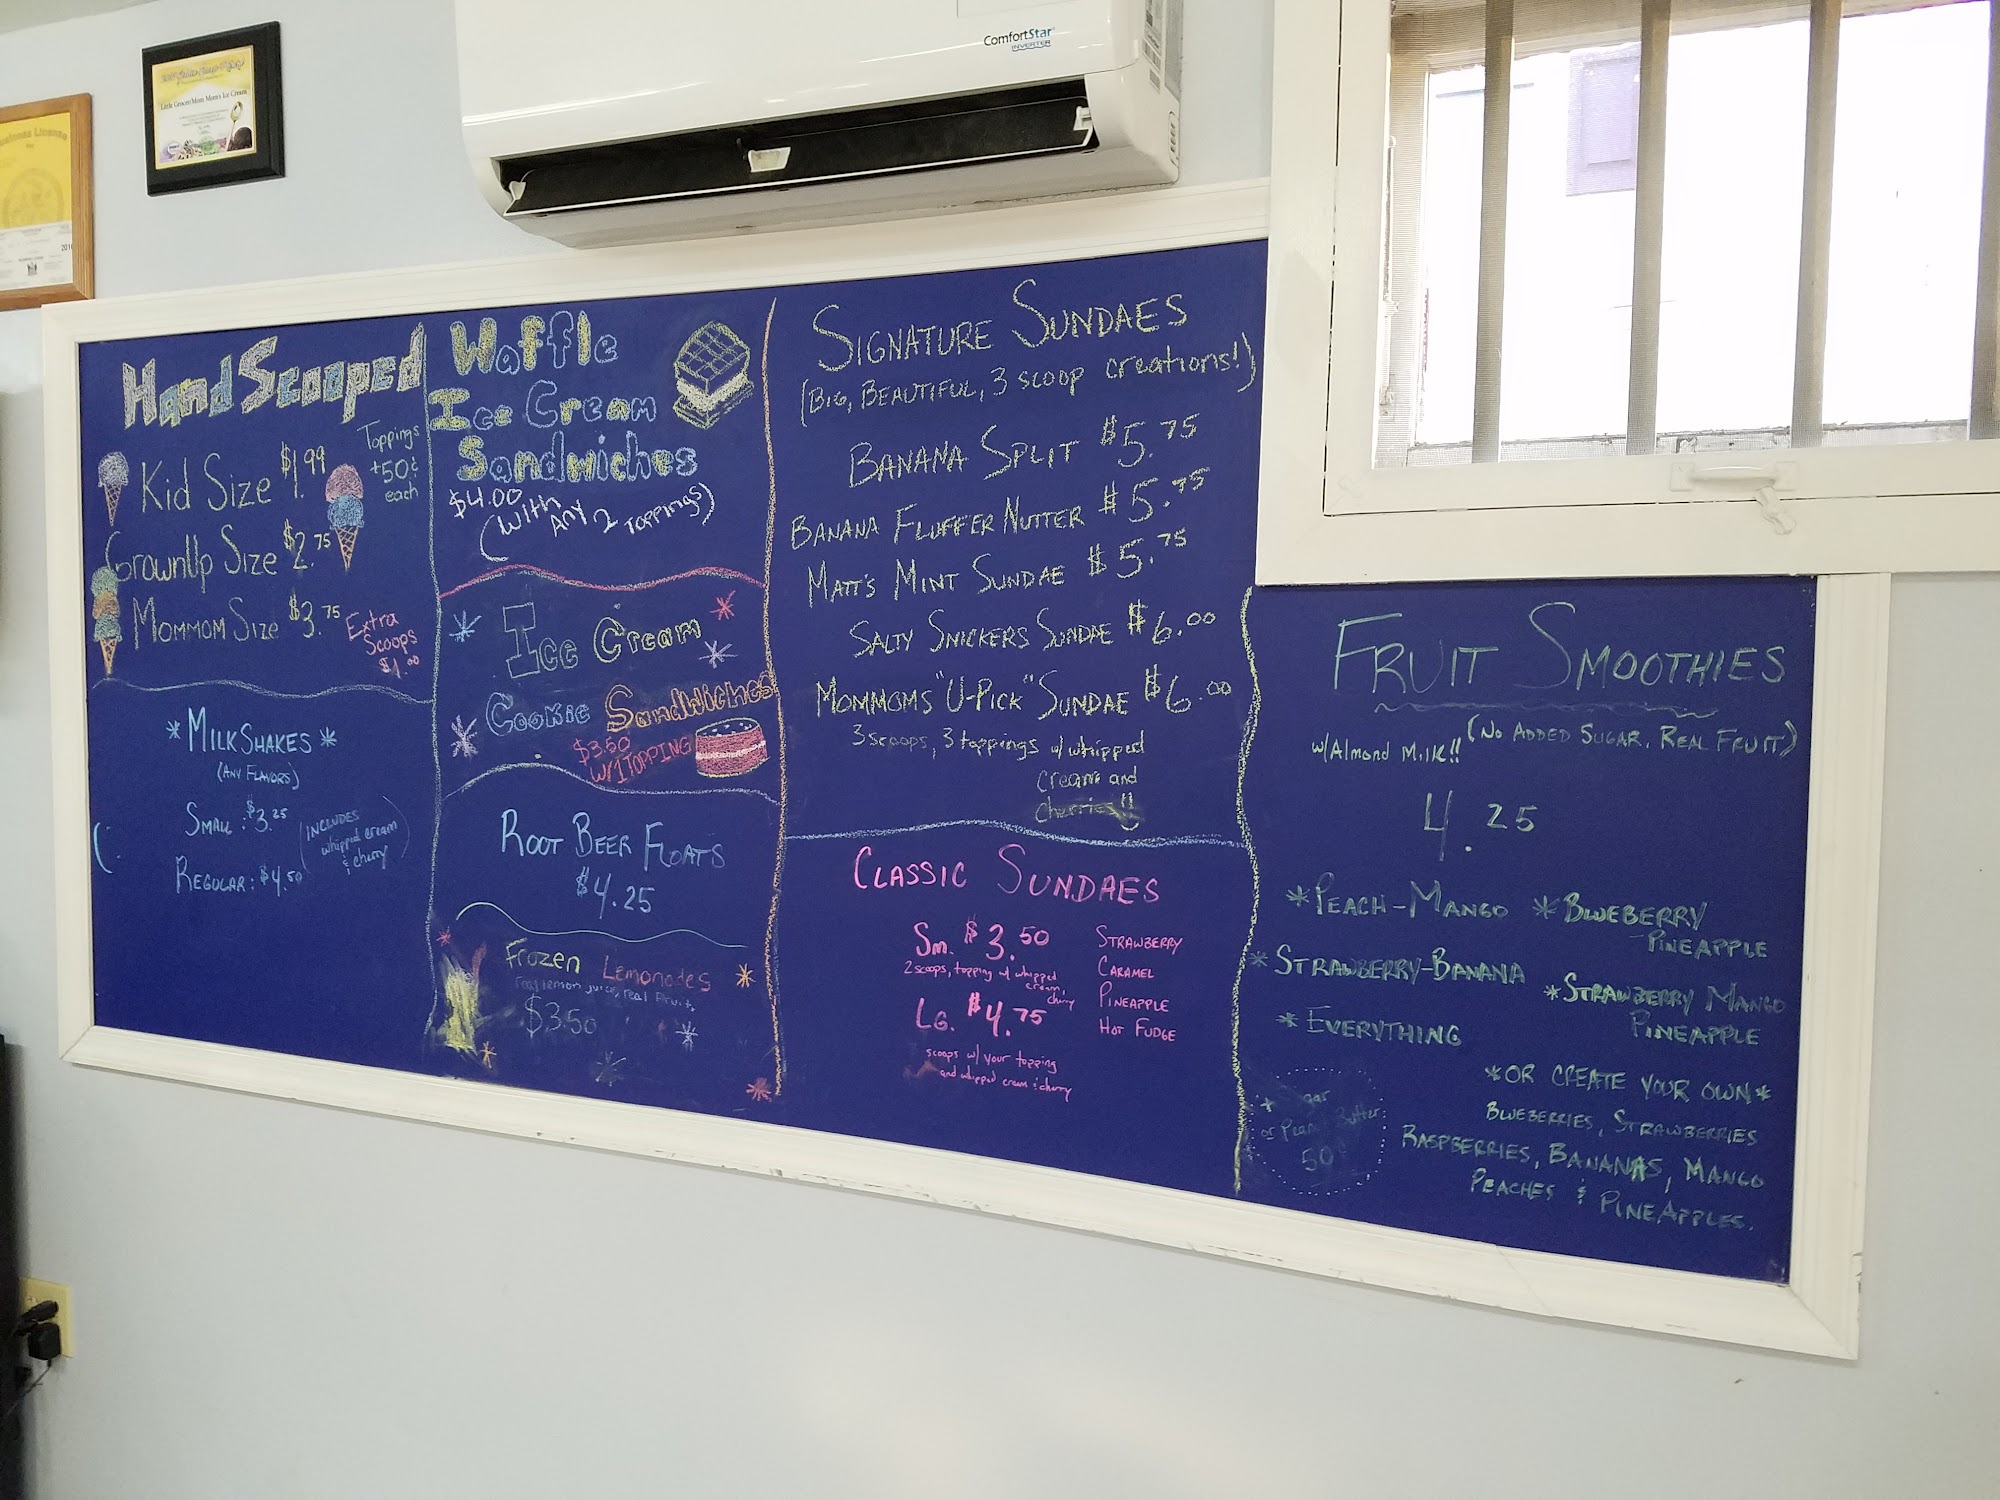 ComfortStar
INVERTER
Little Grocer/Mom Mom's Ice Cream
Business License
Hand Scooped
Kid Size $1.99
Toppings
+50¢
each
GrownUp Size $2.75
MomMom Size $3.75
Extra
Scoops
$1.00
*MilkShakes*
(Any Flavors)
Small: $3.25
Regular: $4.50
(INCLUDES
whipped cream
& cherry)
Waffle
Ice Cream
Sandwiches
$4.00
(with Any 2 Toppings)
Ice Cream
Cookie Sandwiches
$3.50
w/1 TOPPING
Root Beer Floats
$4.25
Frozen Lemonades
real lemon juice, real fruit,
$3.50
Signature Sundaes
(Big, Beautiful, 3 scoop creations!)
Banana Split $5.75
Banana Fluffer Nutter $5.75
Matt's Mint Sundae $5.75
Salty Snickers Sundae $6.00
MomMoms "U-Pick" Sundae $6.00
3 scoops, 3 toppings w/ whipped
cream and
cherries!!
Classic Sundaes
Sm. $3.50
2 scoops, topping w/ whipped
cream,
cherry
Lg. $4.75
scoops w/ your topping
and whipped cream & cherry
Strawberry
Caramel
Pineapple
Hot Fudge
Fruit Smoothies
(No Added Sugar, Real Fruit)
w/Almond Milk!!
4.25
*Peach-Mango
*Blueberry
Pineapple
*Strawberry-Banana
*Strawberry Mango
Pineapple
*Everything
*OR CREATE YOUR OWN*
Blueberries, Strawberries
Raspberries, Bananas, Mango
Peaches & Pineapples.
or Peanut Butter
50¢